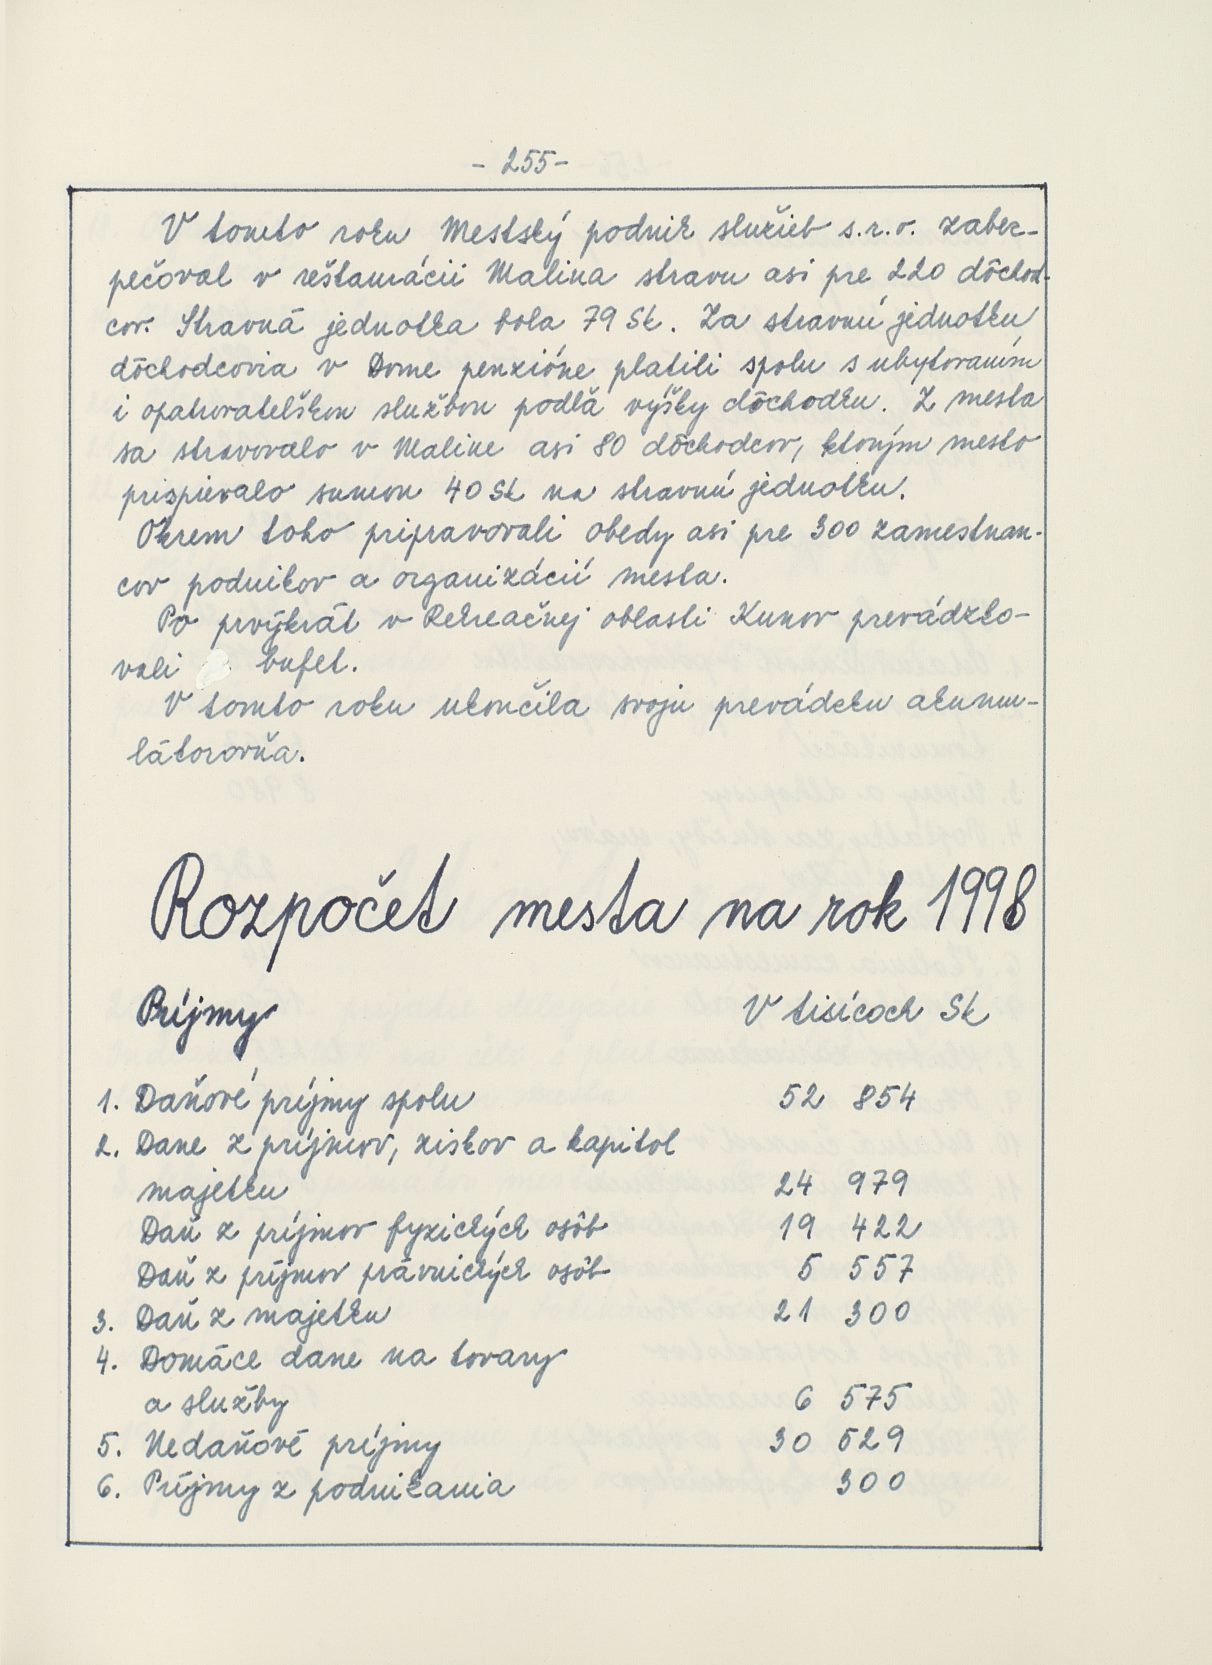 - 255 -
V tomto roku Mestský podnik služieb s.r.o. zabez-
pečoval v reštaurácii Malina stravu asi pre 220 dôchod-
cov. Stravná jednotka bola 79 Sk. Za stravnú jednotku
dôchodcovia v Dome penzióne platili spolu s ubytovaním
i opatrovateľskou službou podľa výšky dôchodku. Z mesta
sa stravovalo v Maline asi 80 dôchodcov, ktorým mesto
prispievalo sumou 40 Sk na stravnú jednotku.
Okrem toho pripravovali obedy asi pre 300 zamestnan-
cov podnikov a organizácií mesta.
Po prvýkrát v Rekreačnej oblasti Kunov prevádzko-
vali bufet.
V tomto roku ukončila svoju prevádzku akumu-
látorovňa.
Rozpočet mesta na rok 1998
Príjmy V tisícoch Sk
1. Daňové príjmy spolu 52 854
2. Dane z príjmov, ziskov a kapitol
majetku 24 979
Daň z príjmov fyzických osôb 19 422
Daň z príjmov právnických osôb 5 557
3. Daň z majetku 21 300
4. Domáce dane na tovary
a služby 6 575
5. Nedaňové príjmy 30 529
6. Príjmy z podnikania 300